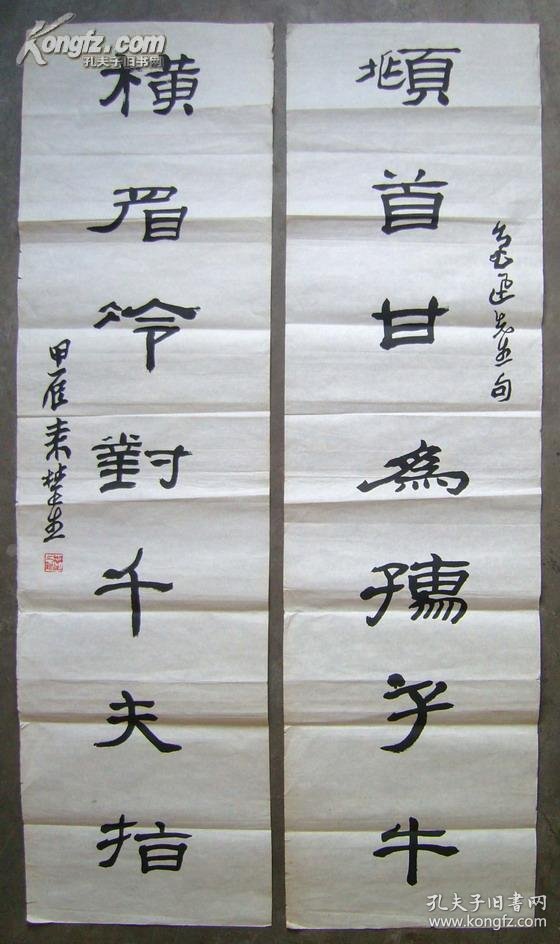 Kongfz.com
孔夫子旧书网
頫首甘為孺子牛
魯迅先生句
橫眉冷對千夫指
甲辰来楚生
孔夫子旧书网
www.kongfz.com